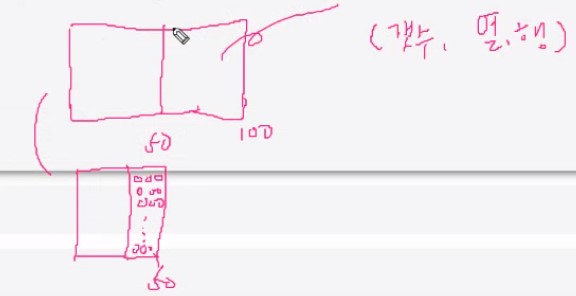 (갯수, 열, 행)
50
100
50